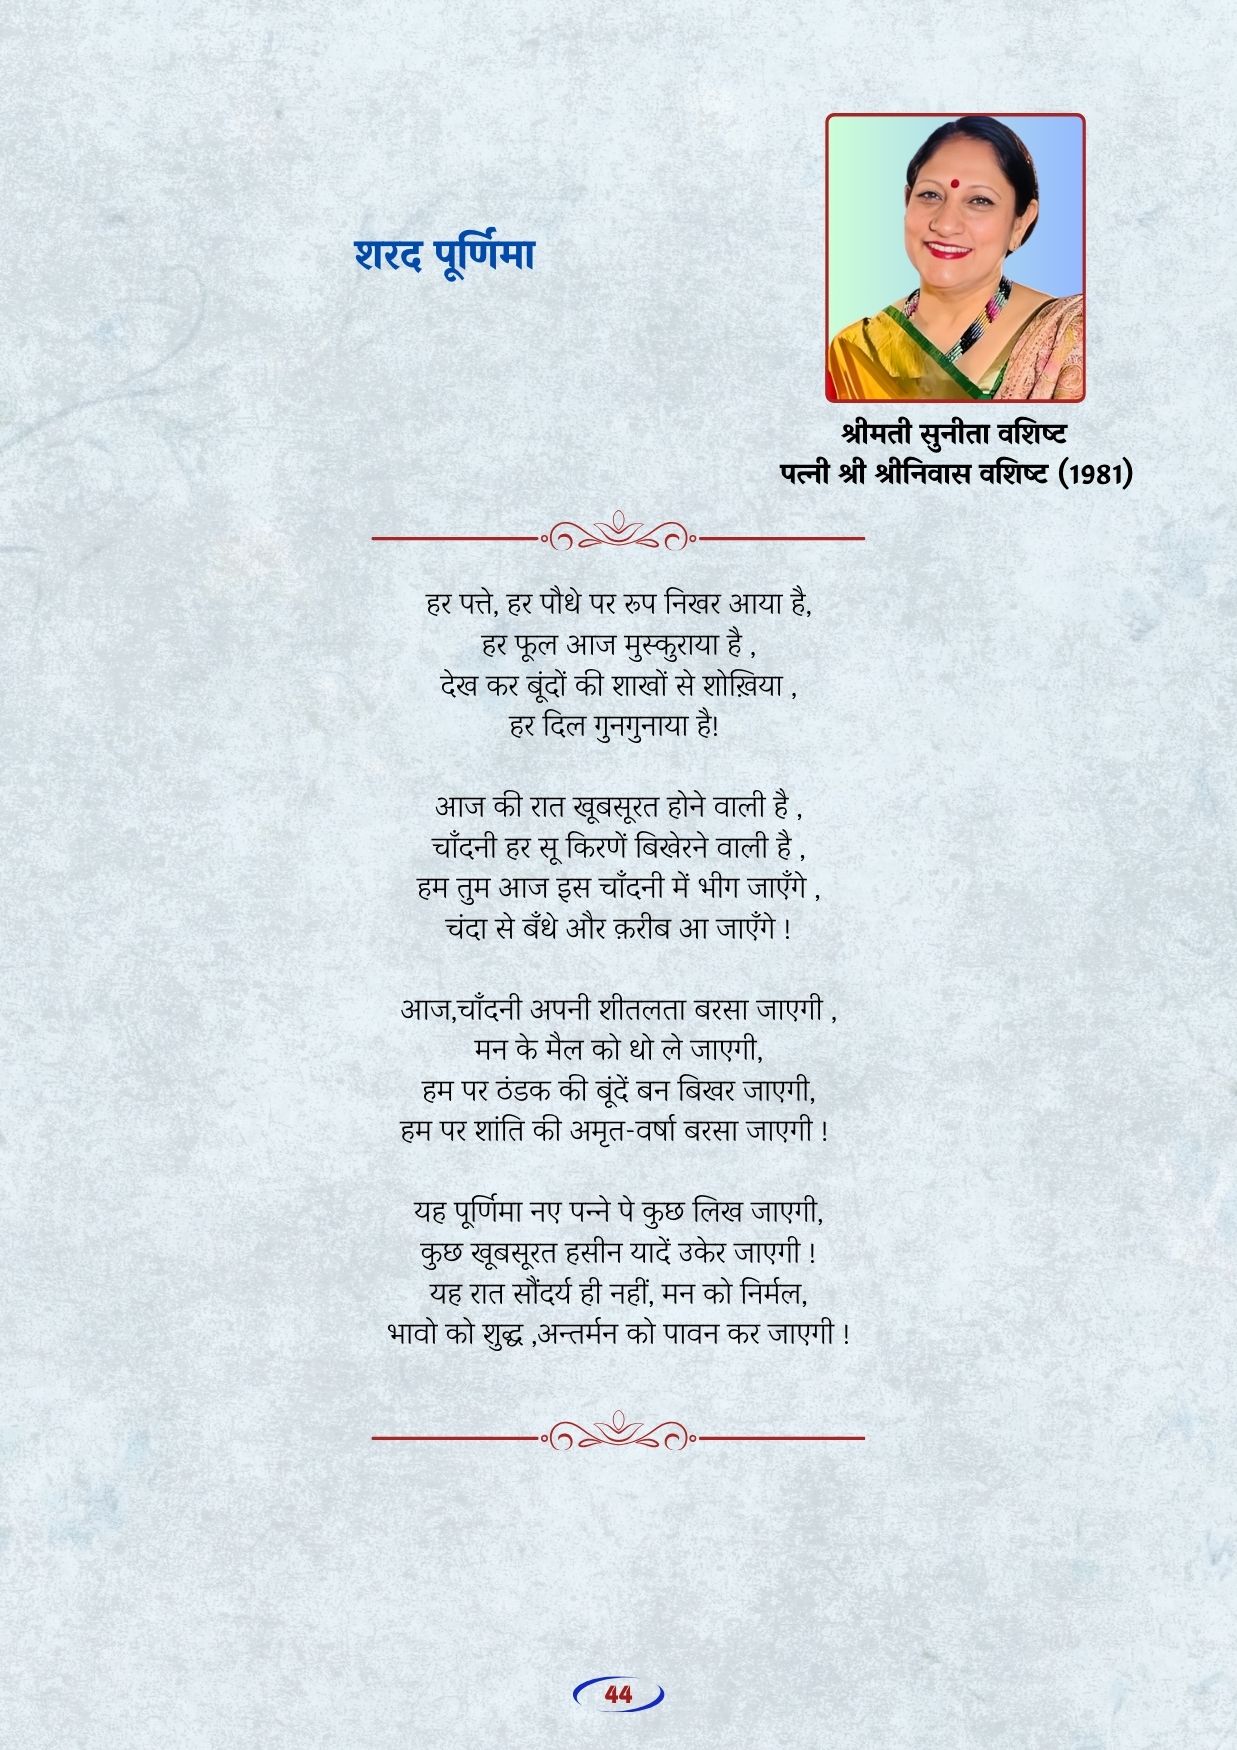 शरद पूर्णिमा
श्रीमती सुनीता वशिष्ट
पत्नी श्री श्रीनिवास वशिष्ट (1981)
हर पत्ते, हर पौधे पर रुप निखर आया है,
हर फूल आज मुस्कुराया है ,
देख कर बूंदों की शाखों से शोख़िया ,
हर दिल गुनगुनाया है!
आज की रात खूबसूरत होने वाली है ,
चाँदनी हर सू किरणें बिखेरने वाली है ,
हम तुम आज इस चाँदनी में भीग जाएँगे ,
चंदा से बँधे और क़रीब आ जाएँगे !
आज,चाँदनी अपनी शीतलता बरसा जाएगी ,
मन के मैल को धो ले जाएगी,
हम पर ठंडक की बूंदें बन बिखर जाएगी,
हम पर शांति की अमृत-वर्षा बरसा जाएगी !
यह पूर्णिमा नए पन्ने पे कुछ लिख जाएगी,
कुछ खूबसूरत हसीन यादें उकेर जाएगी !
यह रात सौंदर्य ही नहीं, मन को निर्मल,
भावो को शुद्ध ,अन्तर्मन को पावन कर जाएगी !
44